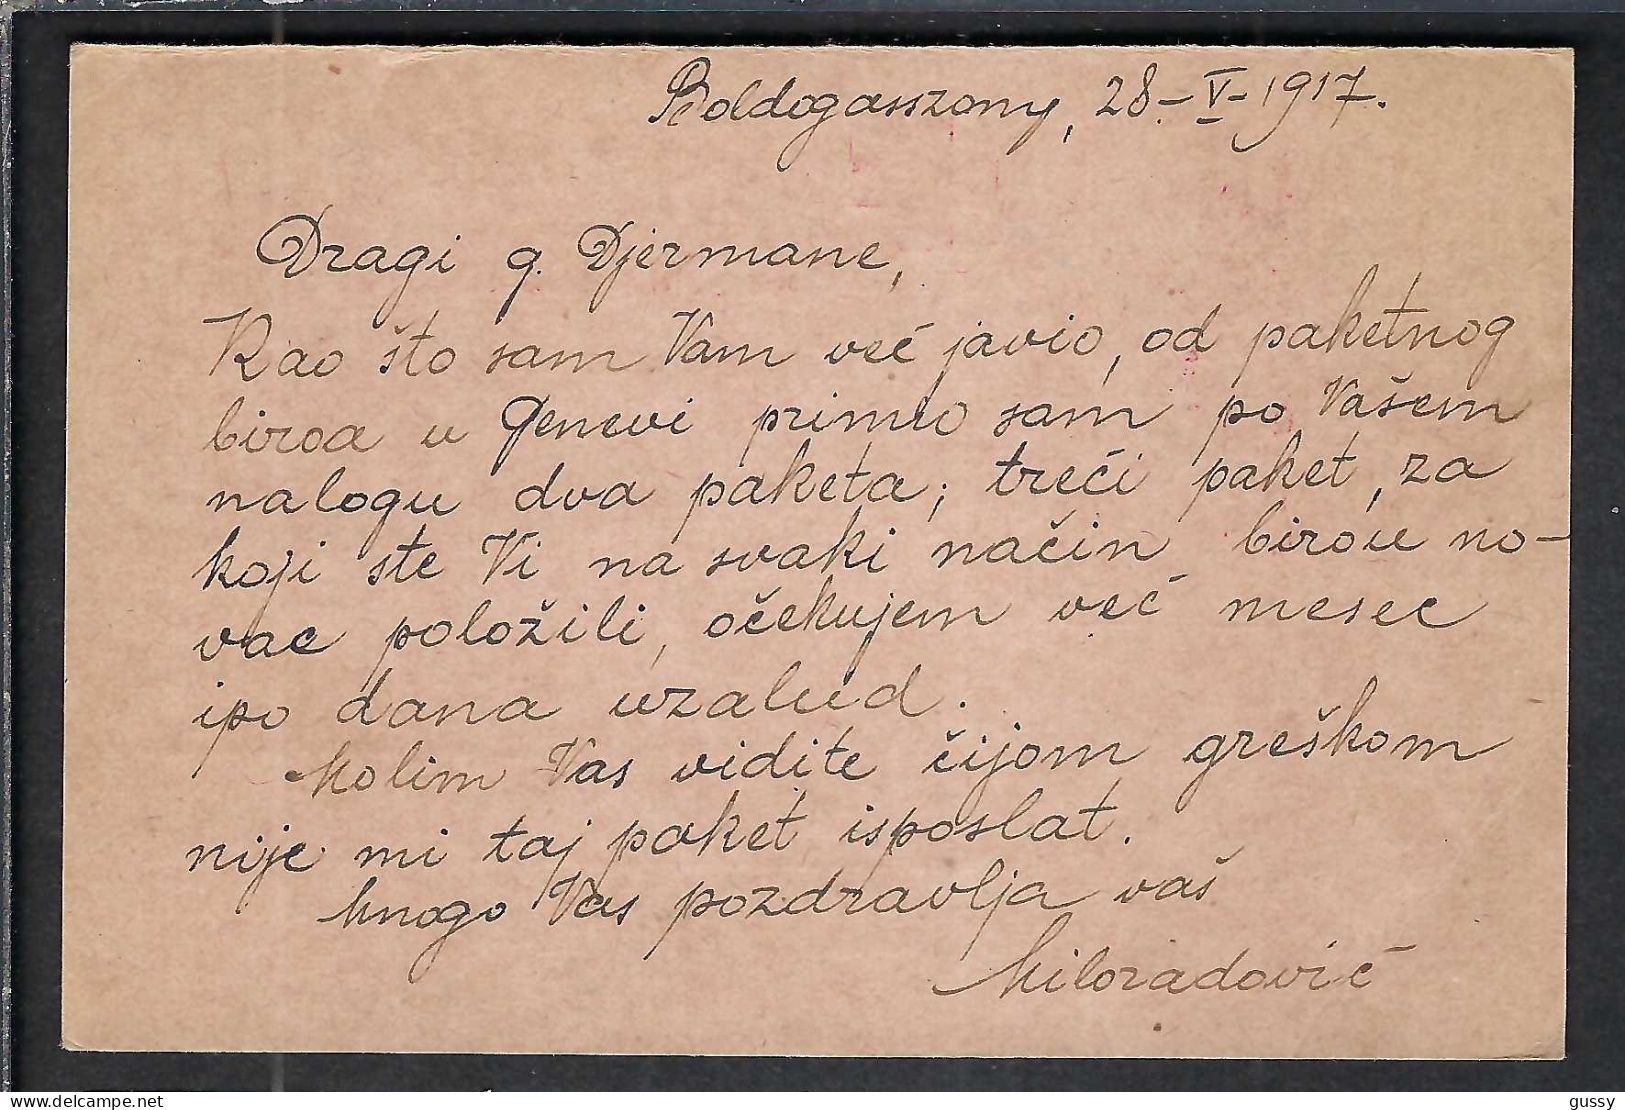 Boldogasszony, 28.-V-1917.
Dragi g. Djermane,
Kao što sam Vam već javio, od paketnog
biroa u Genevi primio sam po Vašem
nalogu dva paketa; treći paket, za
koji ste Vi na svaki način birou no-
vac položili, očekujem već mesec
ipo dana uzalud.
Molim Vas vidite čijom greškom
nije mi taj paket isposlat.
Mnogo Vas pozdravlja vaš
Miloradović
www.delcampe.net
gussy